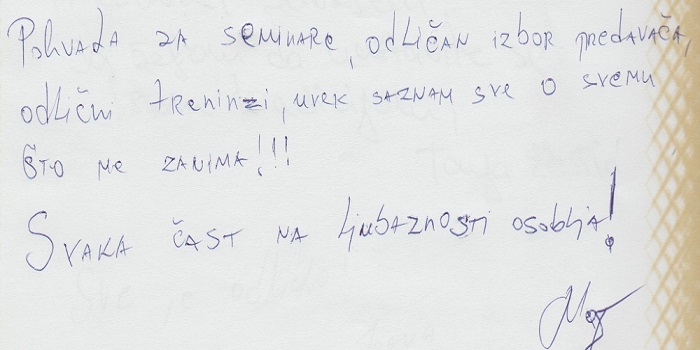 Pohvala za seminare, odličan izbor predavača,
odlični treninzi, uvek saznam sve o svemu
što me zanima!!!
Svaka čast na ljubaznosti osoblja!